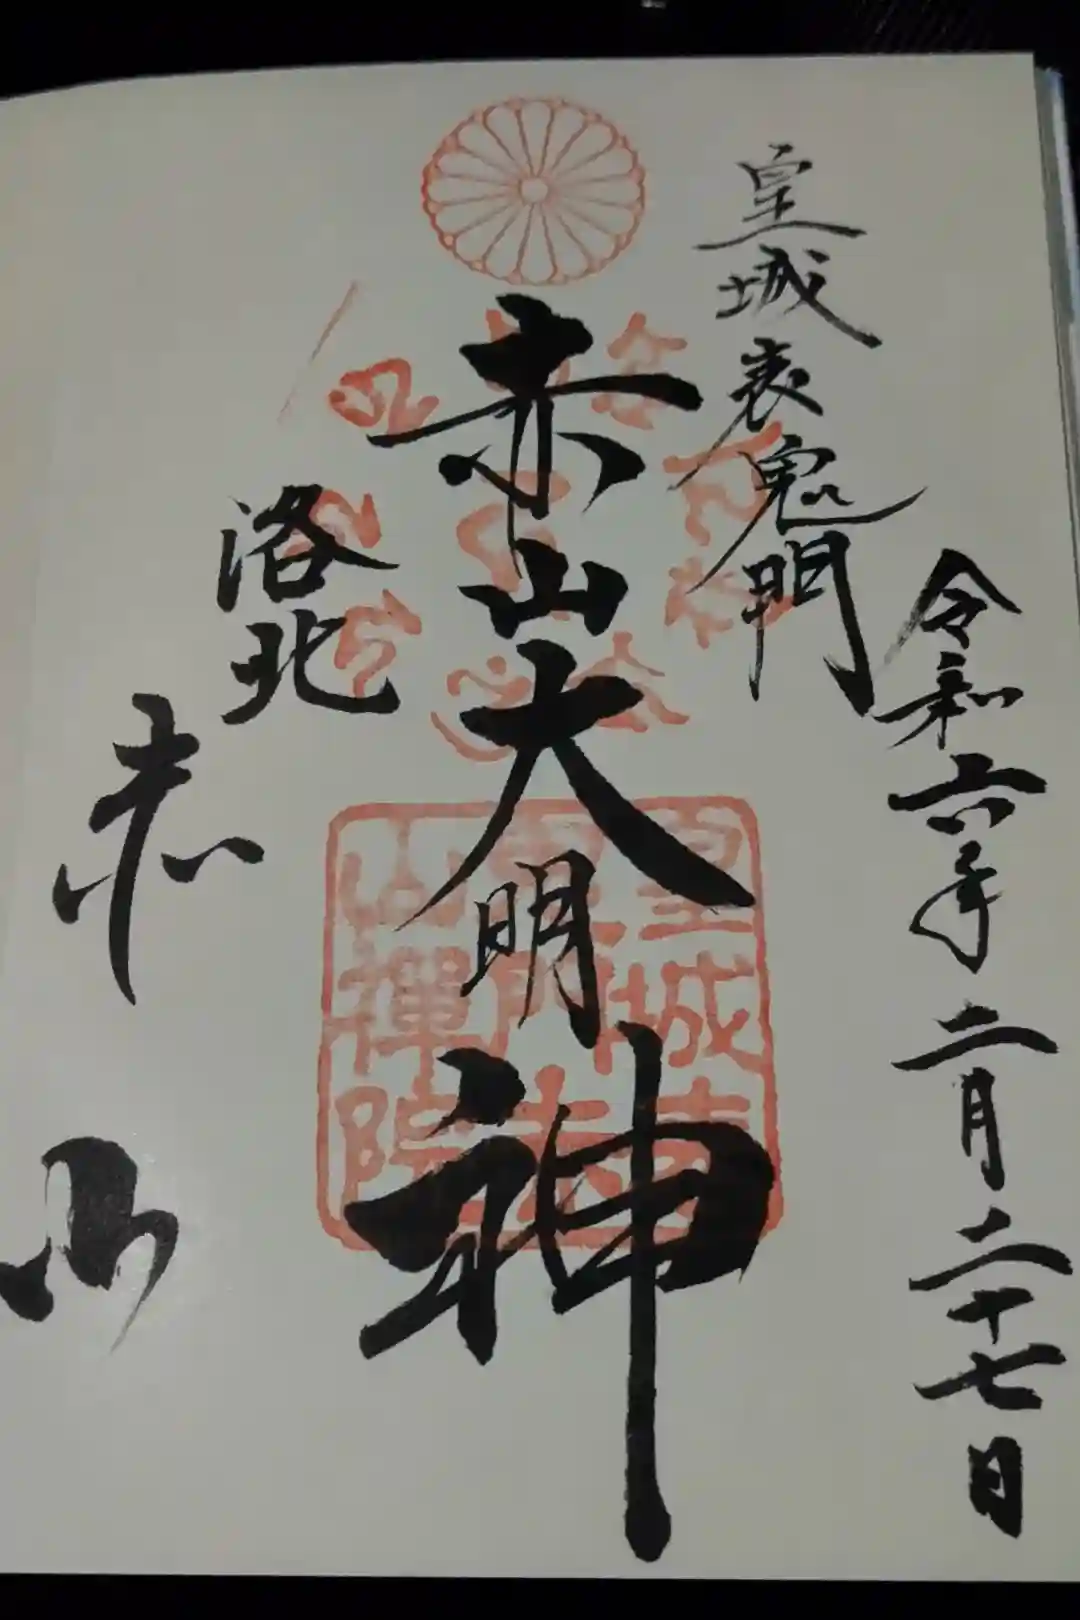 令和六年二月二十七日
皇城表鬼門
赤山大明神
洛北
赤山
皇城表
山禅院